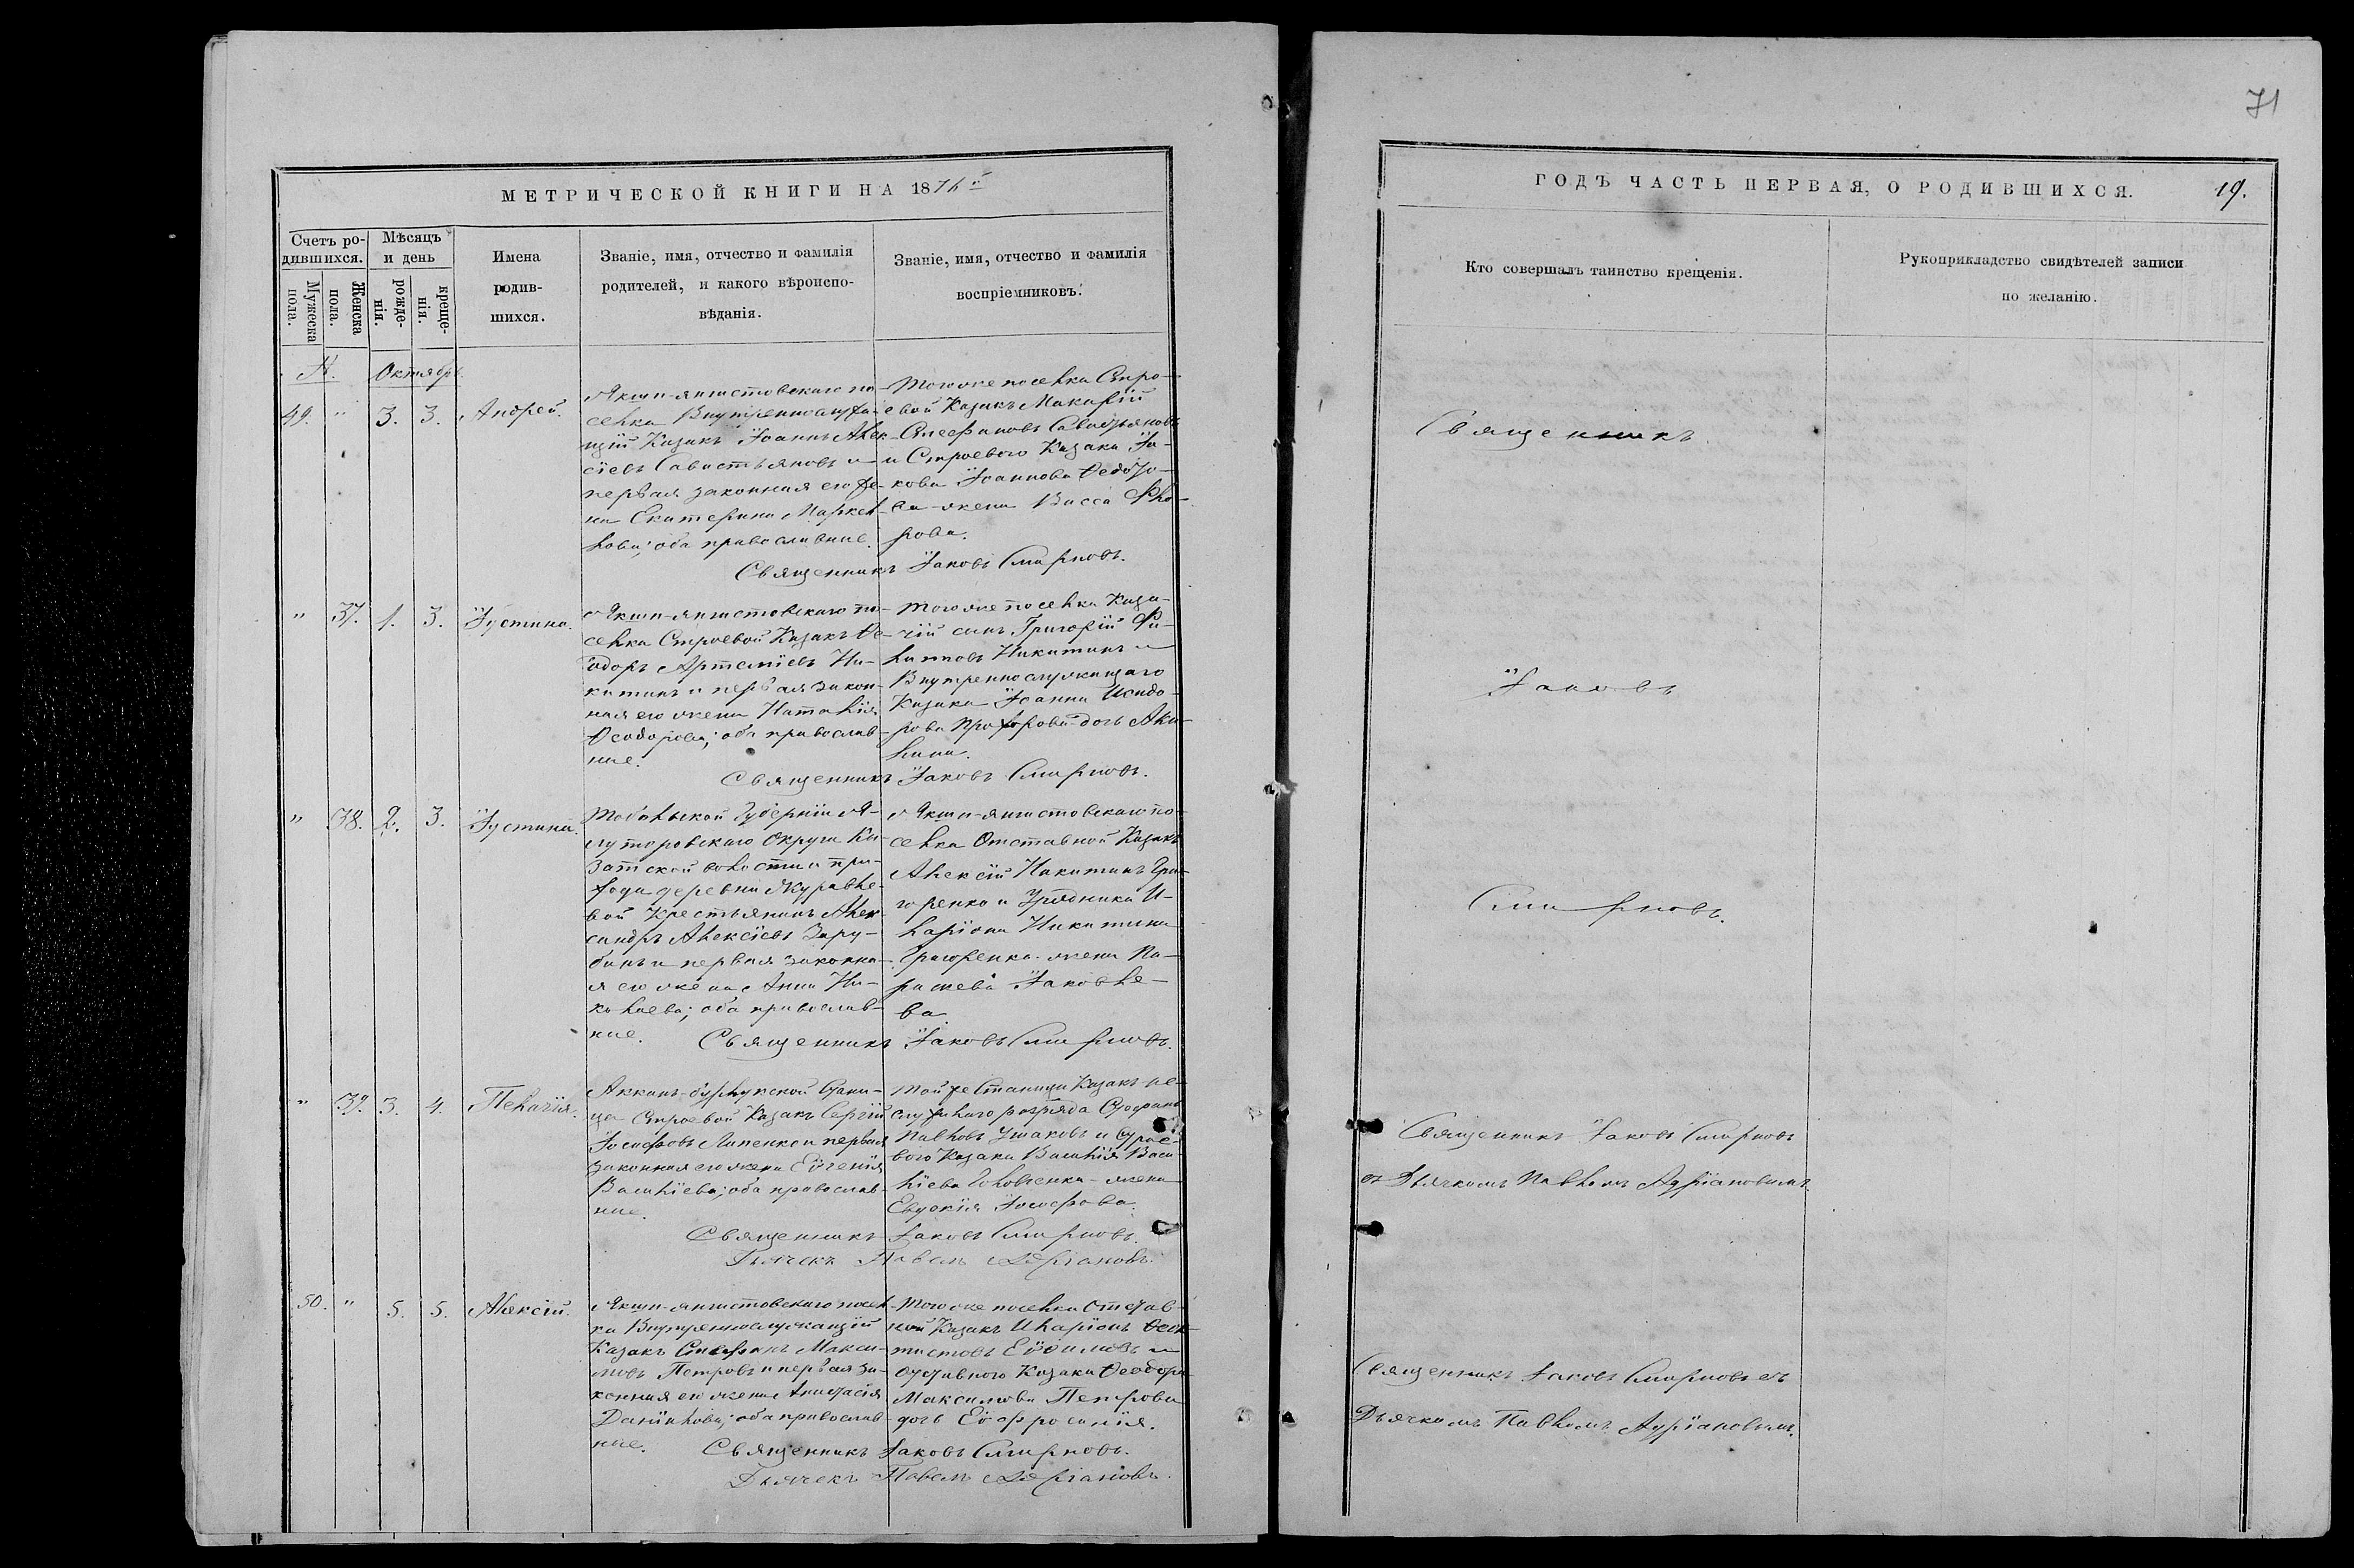 71
МЕТРИЧЕСКОЙ КНИГИ НА 1876й
ГОДЪ ЧАСТЬ ПЕРВАЯ, О РОДИВШИХСЯ.
19.
Счетъ родившихся.
Мужеска пола.
Женска пола.
Мѣсяцъ и день
рожденія.
крещенія.
Имена
родив-
шихся.
Званіе, имя, отчество и фамилія
родителей, и какого вѣроиспо-
вѣданія.
Званіе, имя, отчество и фамилія
воспріемниковъ.
Кто совершалъ таинство крещенія.
Рукоприкладство свидѣтелей записи
по желанію.
Октябрь
49. " 3. 3. Андрей.
Якши-янгистовскаго по-
селка Внутреннослужа-
щій Казакъ Іоаннъ Алек-
сіевъ Савастьяновъ и
первая законная его же-
на Екатерина Маркел-
лова; оба православные.
Того же поселка Стро-
евой Казакъ Макарій
Стефановъ Савастьяновъ
и Строеваго Казака Іа-
кова Іоаннова Федоро-
ва жена Васса Фло-
рова.
Священникъ Іаковъ Смирновъ.
Священникъ
" 37. 1. 3. Іустина.
Якши-янгистовскаго по-
селка Строевой Казакъ Ѳе-
одоръ Артеміевъ Ни-
китинъ и первая закон-
ная его жена Наталія
Ѳеодорова; оба православ-
ные.
Того же поселка Каза-
чій сынъ Григорій Фи-
липповъ Никитинъ и
Внутреннослужащаго
Казака Іоанна Исидо-
рова Прохорова дочь Аки-
лина.
Священникъ Іаковъ Смирновъ.
Іаковъ
" 38. 2. 3. Іустина.
Тобольской Губерніи Я-
луторовскаго Округа Ки-
затской волости и при-
хода деревни Журавле-
вой Крестьянинъ Алек-
сандръ Алексіевъ Зару-
бинъ и первая законна-
я его жена Анна Ни-
колаева; оба православ-
ные.
Якши-янгистовскаго по-
селка Отставной Казакъ
Алексій Никитинъ Гри-
горенко и Урядника И-
ларіона Никитина
Григоренка жена Па-
раскева Іаковле-
ва.
Священникъ Іаковъ Смирновъ.
Смирновъ.
" 39. 3. 4. Пелагія.
Акканъ-бурлукской Стани-
цы Строевой Казакъ Сергій
Іосифовъ Липенко и первая
законная его жена Евгенія
Василіева; оба православ-
ные.
Той же Станицы Казакъ не-
служилаго разряда Стефанъ
Павловъ Ушаковъ и Строе-
вого Казака Василія Васи-
ліева Головченка жена
Евдокія Іосифова.
Священникъ Іаковъ Смирновъ.
Дьячекъ Павелъ Адріановъ.
Священникъ Іаковъ Смирновъ
съ Дьячкомъ Павломъ Адріановымъ
50. " 5. 5. Алексій.
Якши-янгистовскаго посел-
ка Внутреннослужащій
Казакъ Стефанъ Макси-
мовъ Петровъ и первая за-
конная его жена Анастасія
Даніилова; оба православ-
ные.
Того же поселка Отстав-
ной Казакъ Иларіонъ Ѳеок-
тистовъ Евѳимовъ и
Отставного Казака Ѳеодора
Максимова Петрова
дочь Евфросинія.
Священникъ Іаковъ Смирновъ.
Дьячекъ Павелъ Адріановъ.
Священникъ Іаковъ Смирновъ съ
Дьячкомъ Павломъ Адріановымъ.